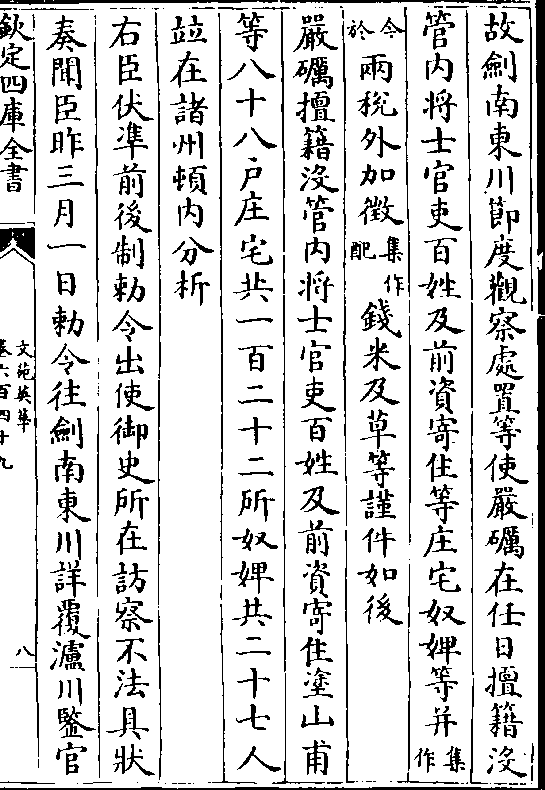 故劍南東川節度觀察處置等使嚴礪在任日擅籍沒
管内將士官吏百姓及前資寄住等庄宅奴婢等并集作
今於兩稅外加徴集作配錢米及草等謹件如後
嚴礪擅籍沒管内將士官吏百姓及前資寄住塗山甫
等八十八户庄宅共一百二十二所奴婢共二十七人
竝在諸州頓内分析
右臣伏準前後制勅令出使御史所在訪察不法具狀
奏聞臣昨三月一日勅令往劍南東川詳覆瀘川鑒官
欽定四庫全書
文苑英華
卷六百四十九
八